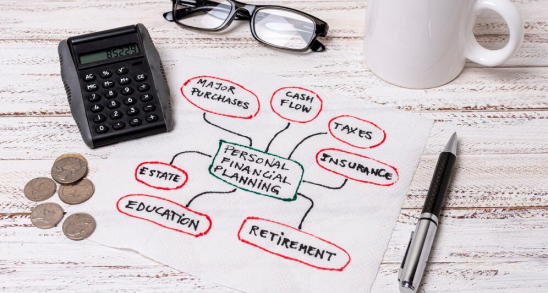 85229
MAJOR
PURCHASES
CASH
FLOW
TAXES
INSURANCE
PERSONAL
FINANCIAL
PLANNING
ESTATE
EDUCATION
RETIREMENT